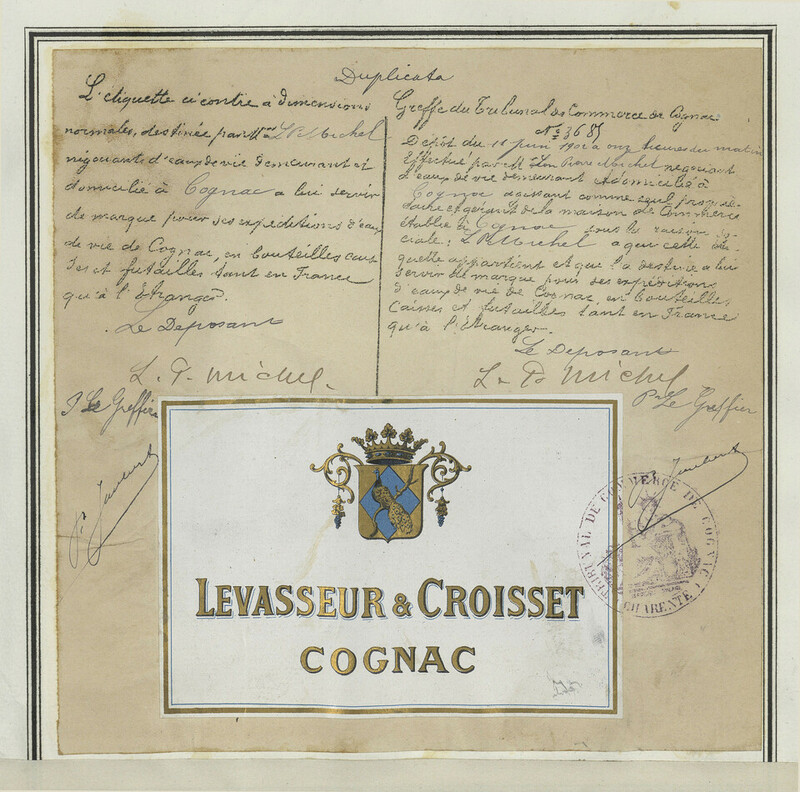 Duplicata
L'etiquette ci contre à dimensions
normales, destinée par M. L. P. Michel
négociant d'eaux de vie demeurant et
domicilié à Cognac a lui servir
de marque pour ses expéditions d'eaux
de vie de Cognac, en bouteilles cais
ses et futailles tant en France
qu'à l'Etranger.
Le Deposant
L. P. Michel
P. Le Greffier
Greffe du Tribunal de Commerce de Cognac
No 3685
Dépôt du juin à onze heures du matin
Effectué par M. Léon Pierre Michel negociant
d'eaux de vie demeurant et domicilié à
Cognac agissant comme seul proprié-
taire et gérant de la maison de Commerce
établie à Cognac sous la raison so-
ciale: L. P. Michel a qui cette éti-
quette appartient et que l'a destine a lui
servir de marque pour ses expéditions
d'eaux de vie de Cognac, en bouteilles
Caisses et futailles tant en France
qu'à l'étranger.
Le Deposant
L. P. Michel
Pr Le Greffier
LEVASSEUR & CROISSET
COGNAC
TRIBUNAL DE COMMERCE DE COGNAC
CHARENTE